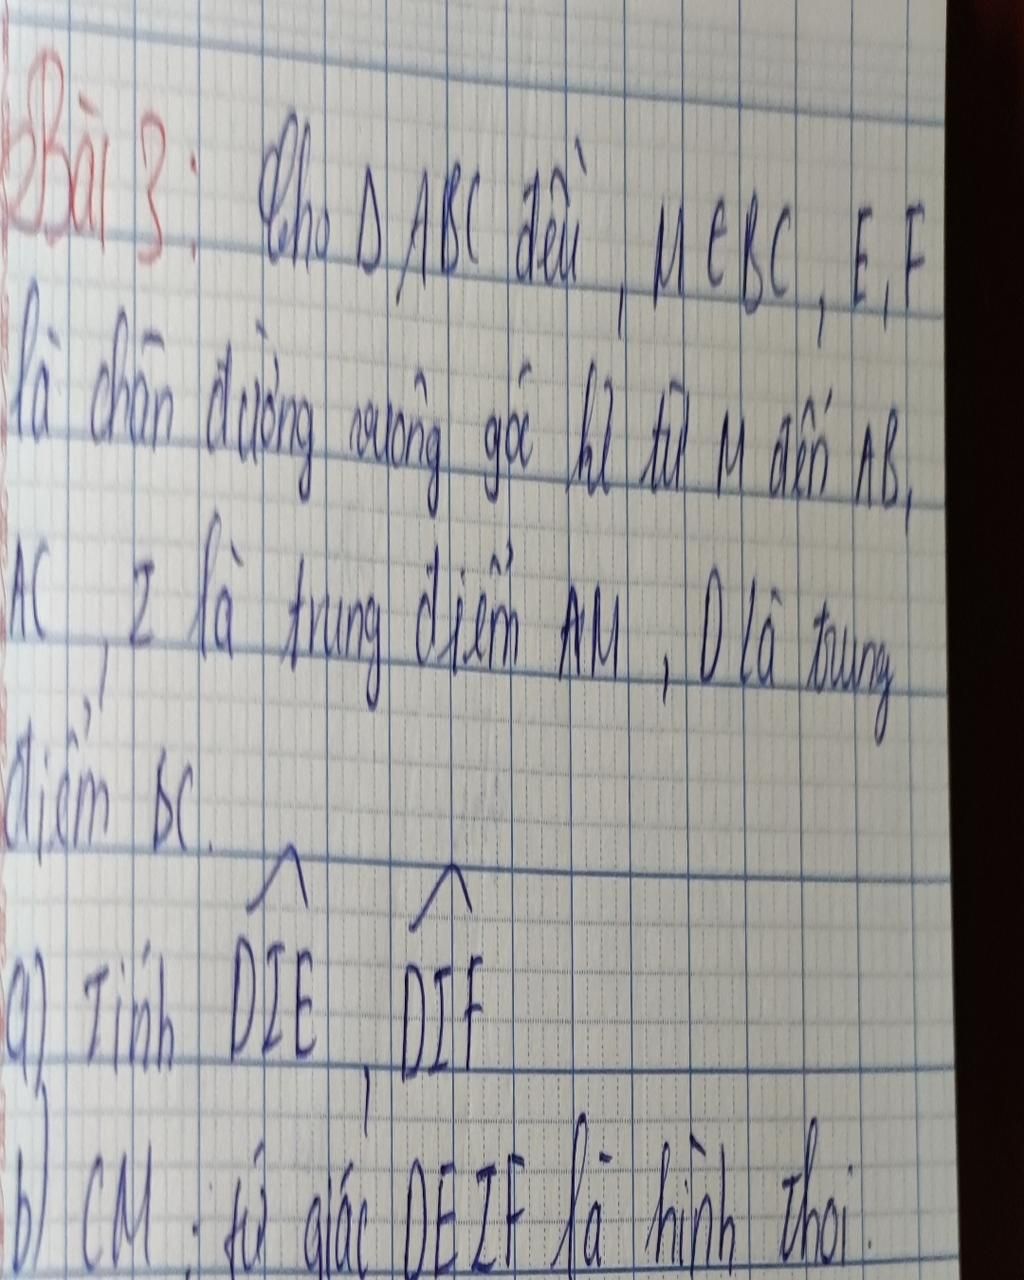 Bài 3: Cho Δ ABC đều, M ∈ BC, E, F
là chân đường vuông góc kẻ từ M đến AB,
AC, I là trung điểm AM, D là trung
điểm BC.
a) Tính DIE, DIF
b) CM: tứ giác DEIF là hình thoi.